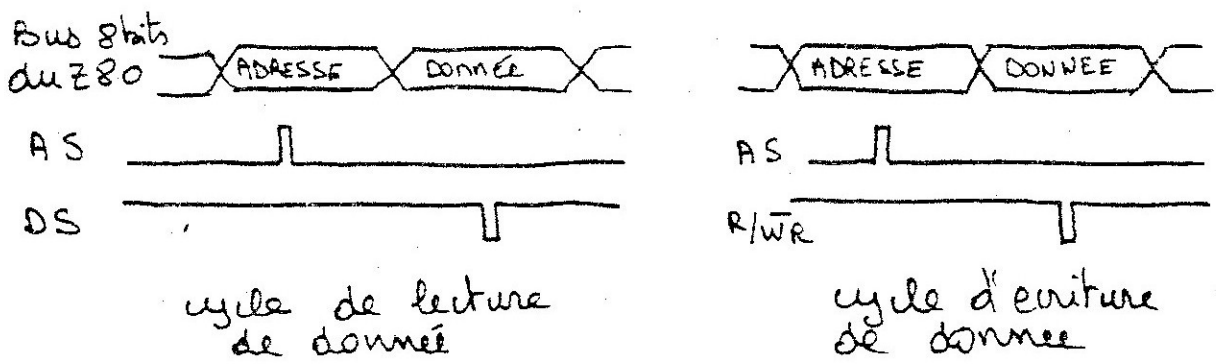 Bus 8 bits
du Z80
ADRESSE DONNÉE
AS
DS
cycle de lecture
de donnée
ADRESSE DONNEE
AS
R/W̅R̅
cycle d'ecriture
de donnee